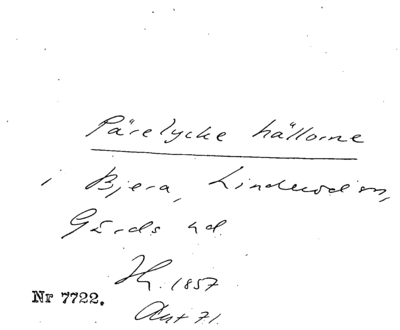 Pärelycke hällorne
i Bjera, Linderöd sn,
Gärds hd
Hy. 1857
Nr 7722.
Akt 71.